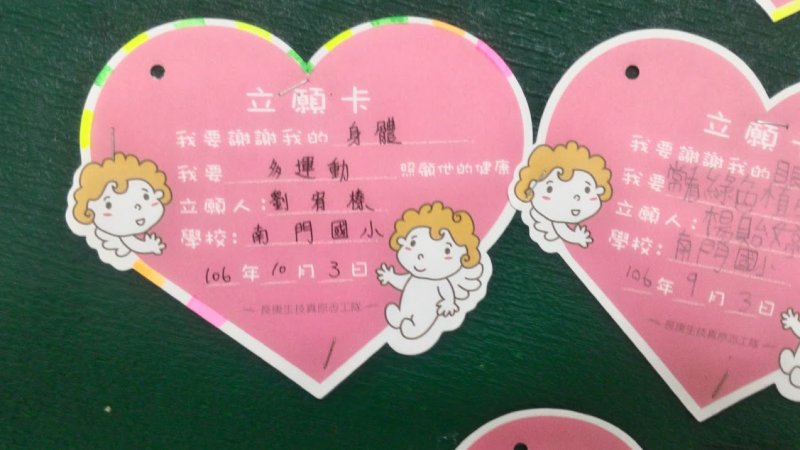 立願卡
我要謝謝我的 身體
我要 多運動 照顧他的健康
立願人:劉宥榛
學校:南門國小
106年10月3日
長庚生技真原志工隊
立願
我要謝謝我的
我要 綠色植
立願人:楊貽
學校:南門國小
106年9月3日
長庚生技真原志工隊